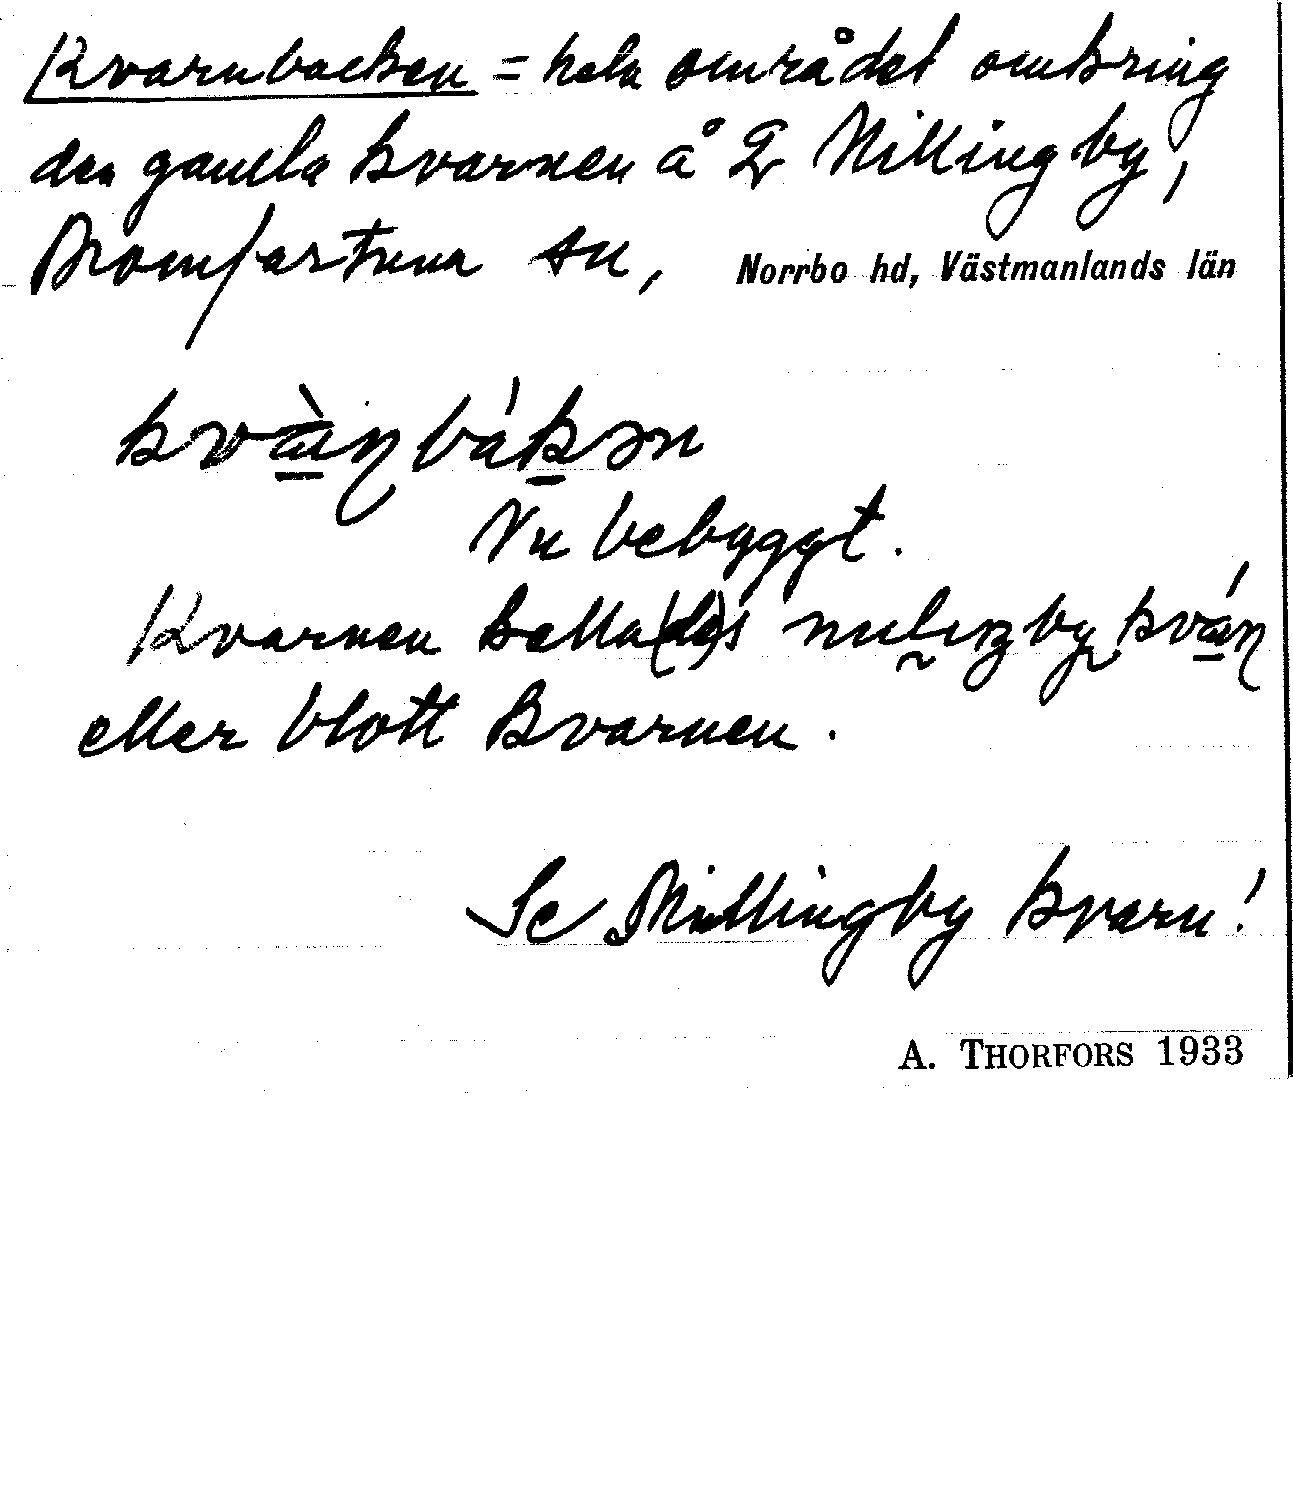 Kvarnbacken = hela området omkring
den gamla kvarnen å Nillingby,
Romfartuna sn, Norrbo hd, Västmanlands län
Nu bebyggt.
Kvarnen kalla(de)s
eller blott Kvarnen.
Se Nillingby kvarn!
A. THORFORS 1933